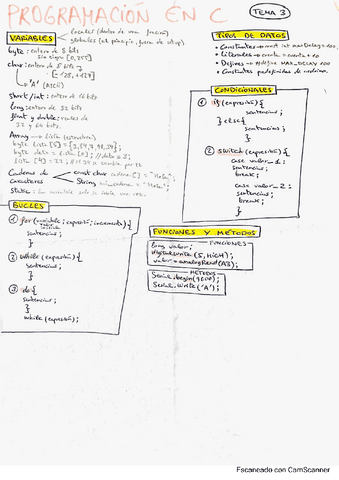 PROGRAMACIÓN EN C
TEMA 3
VARIABLES
locales (dentro de una función)
globales (al principio, fuera de setup)
byte: entero de 8 bits
sin signo [0,255]
char: entero de 8 bits
[-128, +127]
'A' (ASCII)
short/int: entero de 16 bits
long: entero de 32 bits
float y double: reales de
32 y 64 bits.
Array → lista (estructura)
byte lista [5] =
byte dato = lista [2];
lista [4] = 22;
Cadenas de
caracteres
const char cadena [] = "Hola";
String
static:
BUCLES
① for (variable; expresión; incremento) {
sentencias;
}
② while (expresión) {
sentencias;
}
③ do {
sentencias;
}
while (expresión);
TIPOS DE DATOS
• Constantes → const int maxDelay = 100;
• Literales → cuenta = cuenta + 10
• Defines → #define MAX_DELAY 100
• Constantes predefinidas de arduino.
CONDICIONALES
① if (expresión) {
sentencias;
} else {
sentencias;
}
② switch (expresión) {
case valor_1:
sentencias;
break;
case valor_2:
sentencias;
break;
}
FUNCIONES Y MÉTODOS
FUNCIONES
long valor;
digitalWrite (5, HIGH);
valor = analogRead (A3);
MÉTODOS
Serial.begin (9600);
Serial.write ('A');
Escaneado con CamScanner